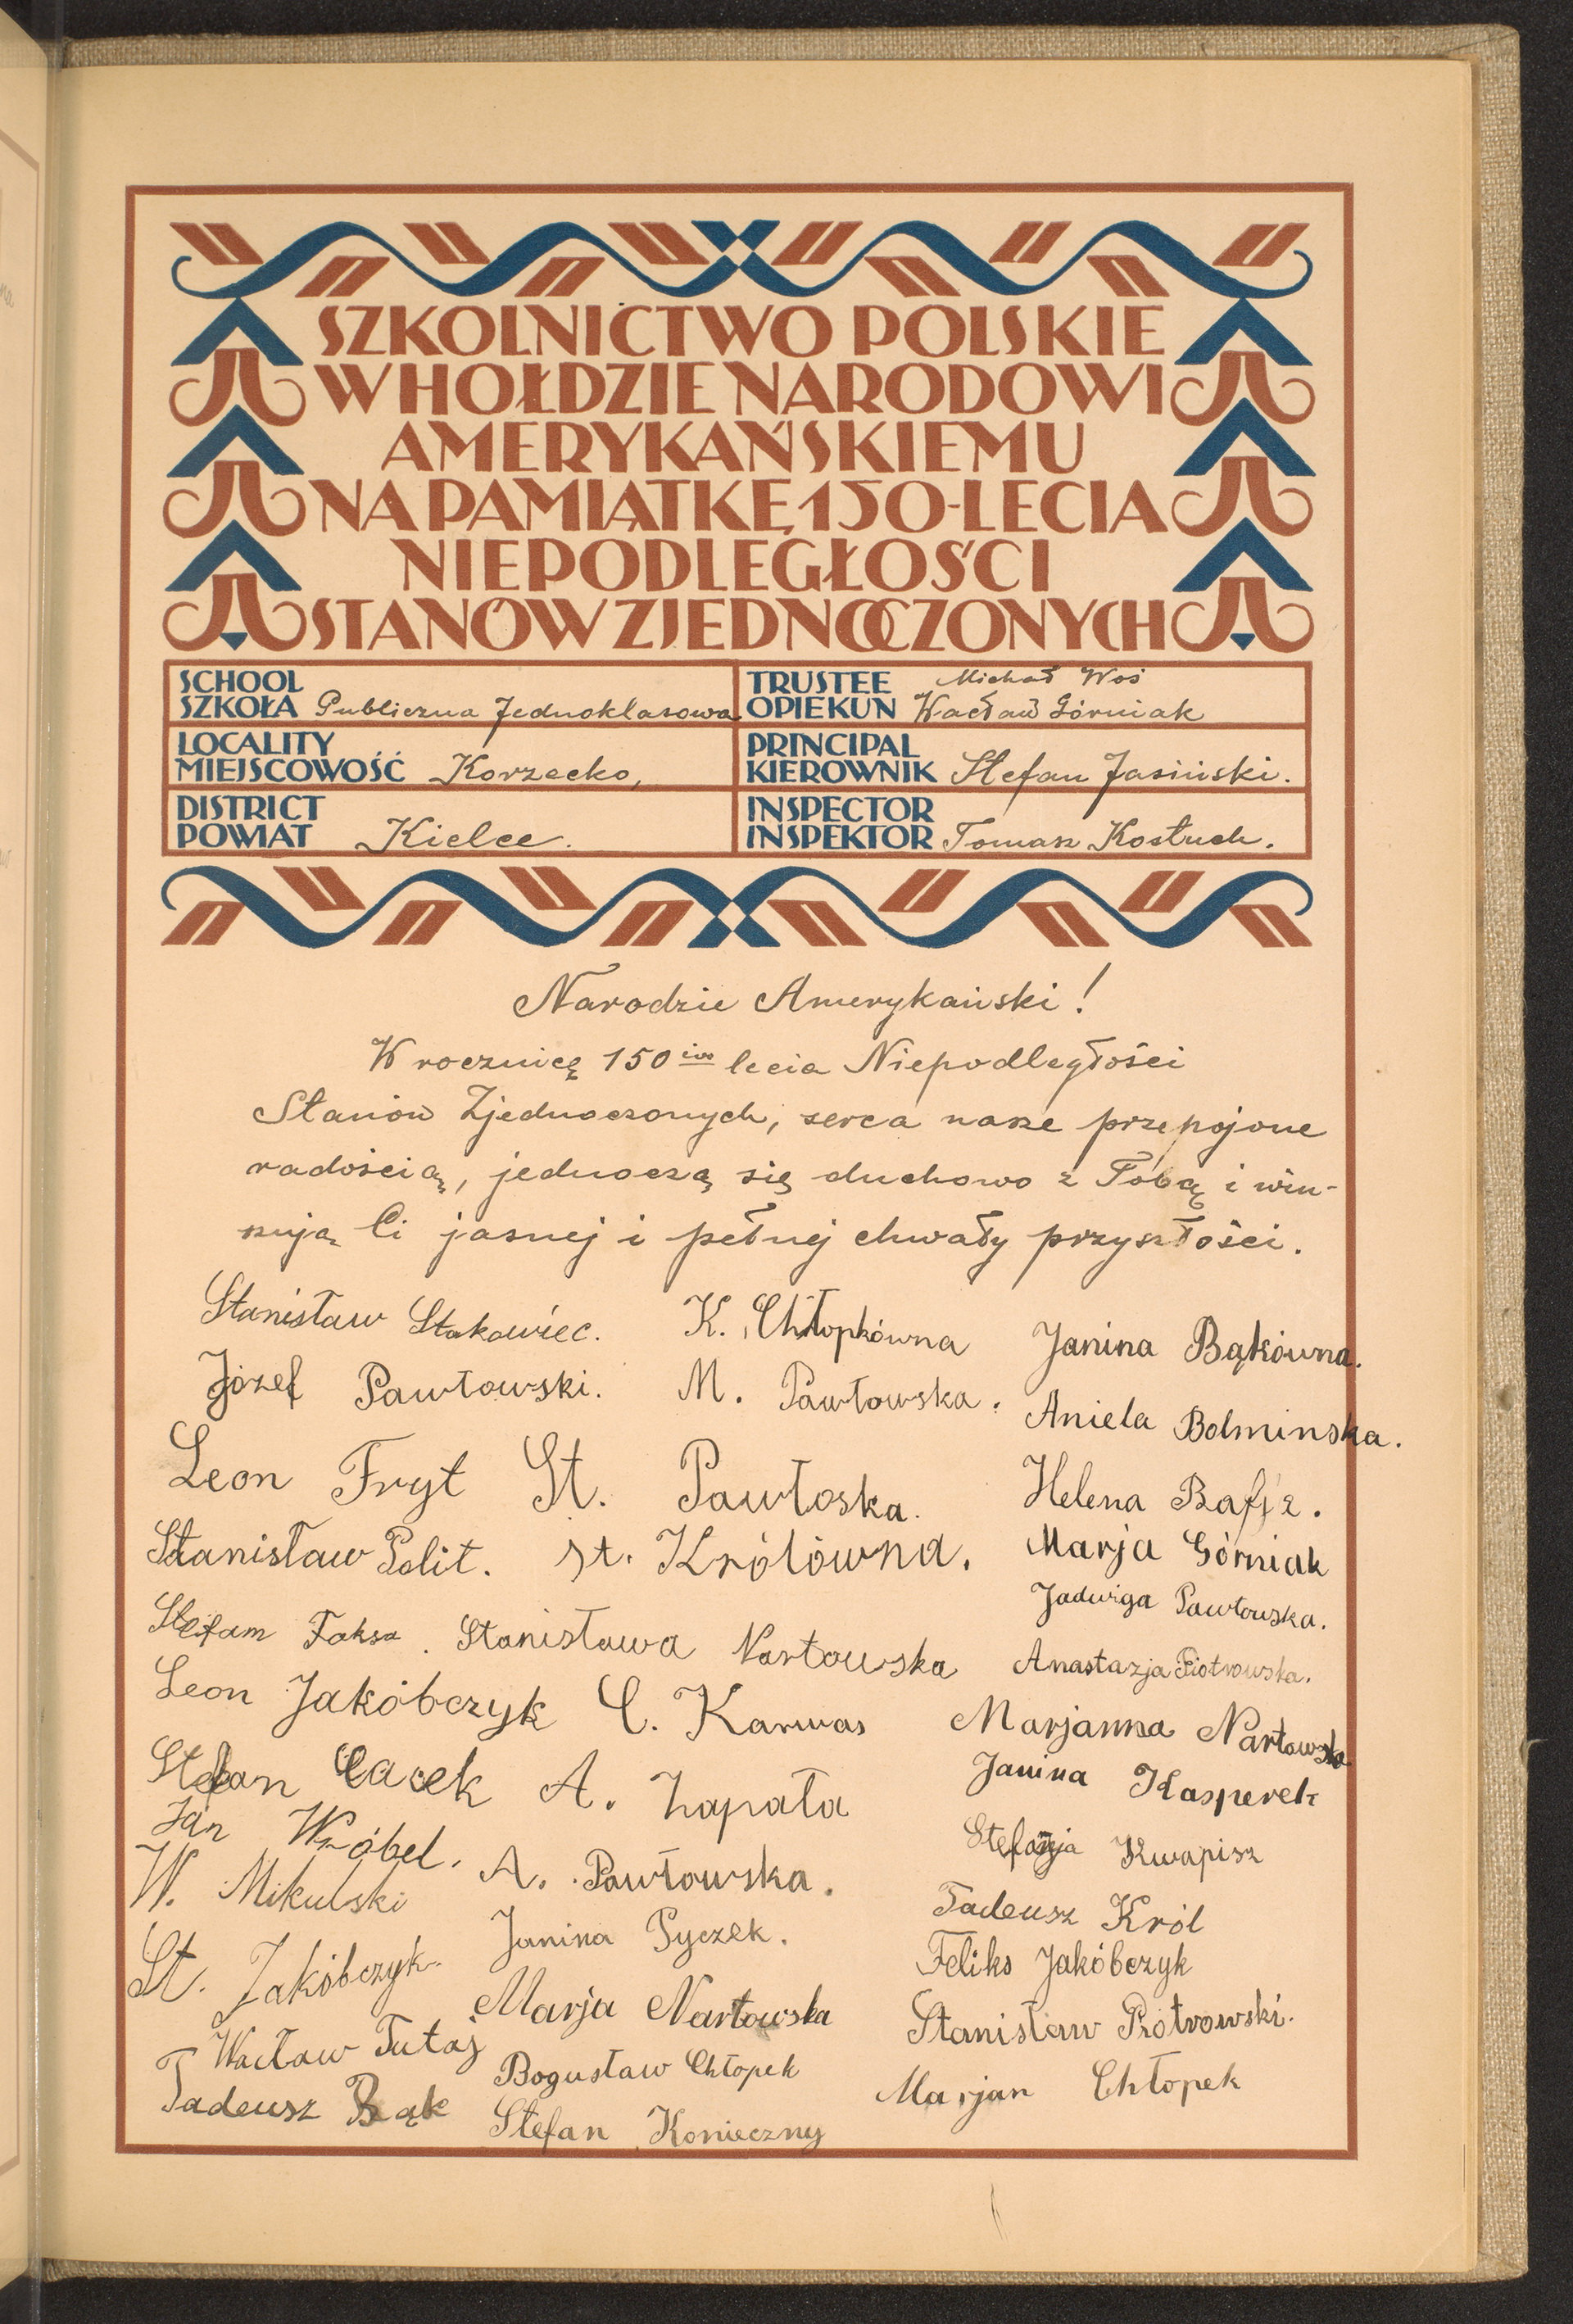 SZKOLNICTWO POLSKIE
W HOŁDZIE NARODOWI
AMERYKAŃSKIEMU
NA PAMIĄTKĘ 150-LECIA
NIEPODLEGŁOŚCI
STANÓW ZJEDNOCZONYCH
SCHOOL
SZKOŁA Publiczna Jednoklasowa
TRUSTEE Michał Woś
OPIEKUN Wacław Górniak
LOCALITY
MIEJSCOWOŚĆ Korzecko,
PRINCIPAL
KIEROWNIK Stefan Jasiński.
DISTRICT
POWIAT Kielce.
INSPECTOR
INSPEKTOR Tomasz Kostuch.
Narodzie Amerykański!
W rocznicę 150 lecia Niepodległości
Stanów Zjednoczonych, serca nasze przepojone
radością, jednoczą się duchowo z Tobą i win-
szują Ci jasnej i pełnej chwały przyszłości.
Stanisław Stakowiec.
Józef Pawłowski.
Leon Fryt
Stanisław Polit.
Stefam Faksa.
Leon Jakóbczyk
Stefan Cacek
Jan Wróbel.
W. Mikulski
St. Jakóbczyk.
Wacław Tutaj
Tadeusz Bąk
K. Chłopkówna
M. Pawłowska.
St. Pawłoska.
St. Królówna.
Stanisława Nartowska
C. Karwas
A. Zapała
A. Pawłowska.
Janina Pyczek.
Marja Nartowska
Bogusław Chłopek
Stefan Konieczny
Janina Bąkówna.
Aniela Bolminska.
Helena
Marja Górniak
Jadwiga Pawłowska.
Anastazja Piotrowska.
Marjanna Nartowska
Janina Kasperek
Stefanja Kwapisz
Tadeusz Król
Feliks Jakóbczyk
Stanisław Piotrowski.
Marjan Chłopek